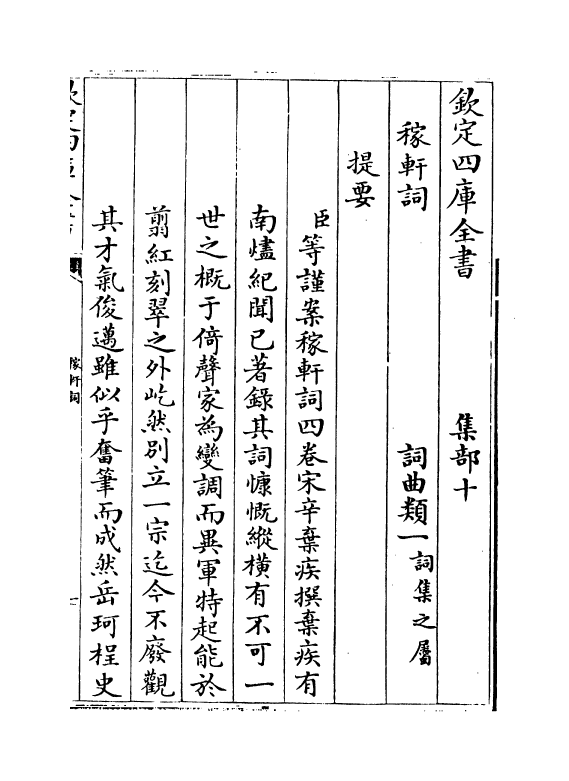 欽定四庫全書　集部十
稼軒詞　詞曲類一詞集之屬
提要
臣等謹案稼軒詞四卷宋辛棄疾撰棄疾有
南燼紀聞已著錄其詞慷慨縱橫有不可一
世之概于倚聲家為變調而異軍特起能於
翦紅刻翠之外屹然別立一宗迄今不廢觀
其才氣俊邁雖似乎奮筆而成然岳珂桯史
稼軒詞